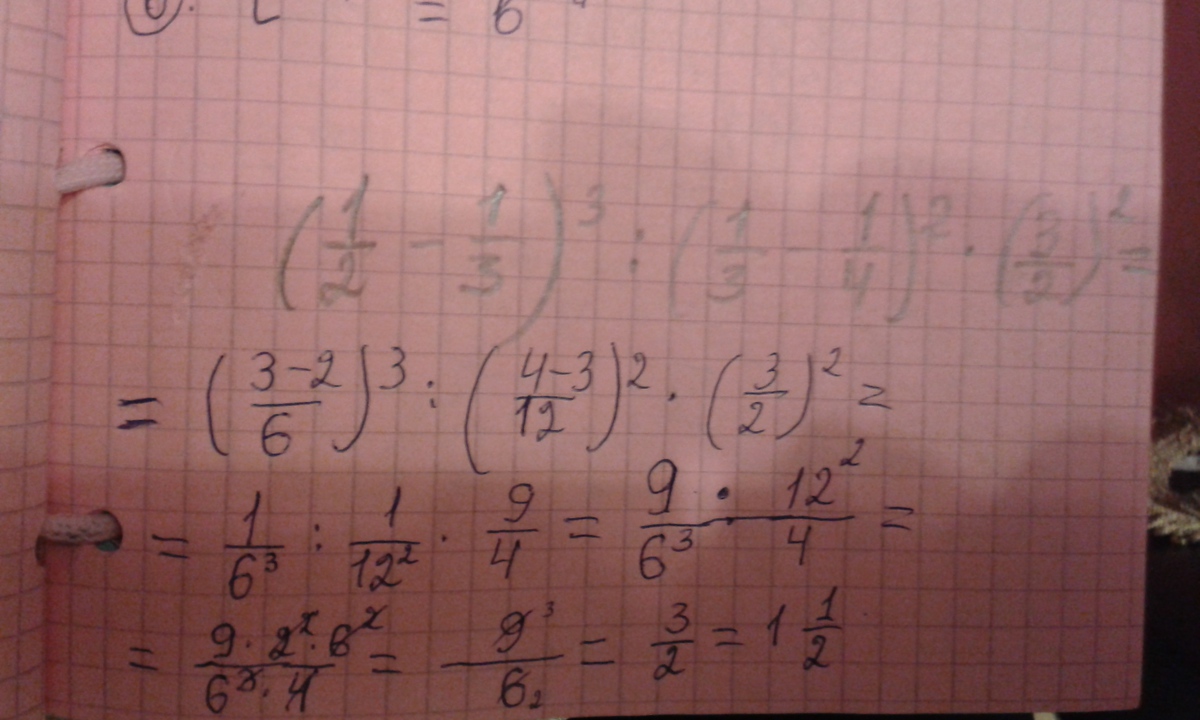 = 6
(1/2 - 1/3)^3 : (1/3 - 1/4)^2 · (3/2)^2 =
= (3-2/6)^3 : (4-3/12)^2 · (3/2)^2 =
= 1/6^3 : 1/12^2 · 9/4 = 9 · 12^2/6^3 · 4 =
= 9 · 2^2 · 6^2/6^3 · 4 = 9^3/6_2 = 3/2 = 1 1/2